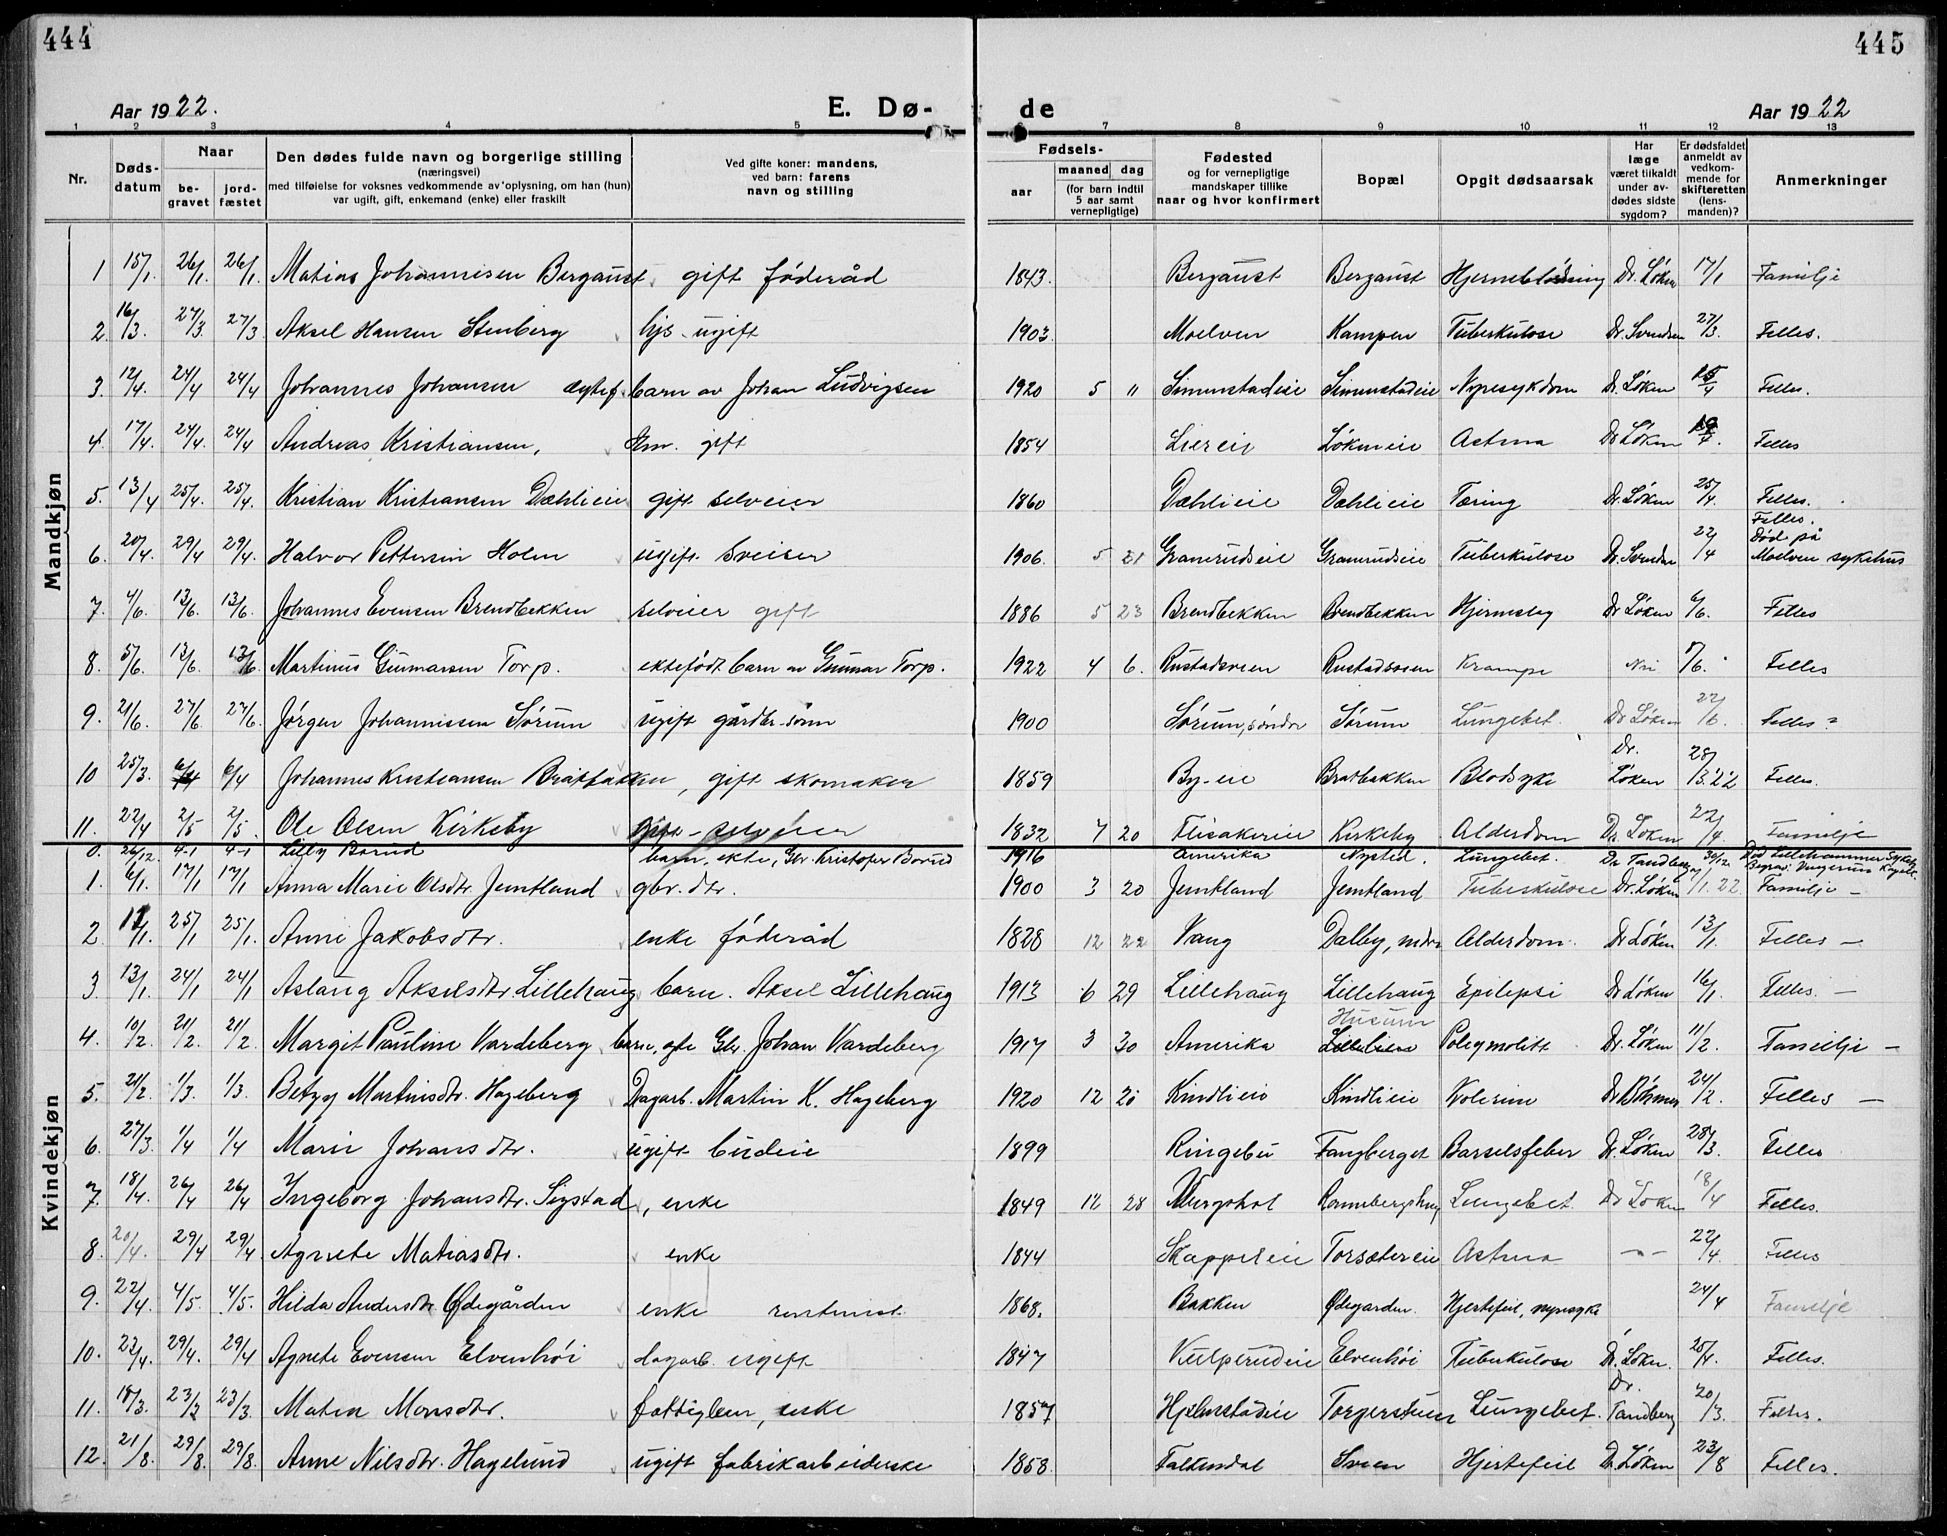 444
445
Aar 1922.
E. Dø-
de
Aar 1922
1 2 3 4 5 6 7 8 9 10 11 12 13
Nr.
Døds-
datum
Naar
be-
gravet
jord-
fæstet
Den dødes fulde navn og borgerlige stilling
(næringsvei)
med tilføielse for voksnes vedkommende av oplysning, om han (hun)
var ugift, gift, enkemand (enke) eller fraskilt
Ved gifte koner: mandens,
ved barn: farens
navn og stilling
Fødsels-
aar
maaned dag
(for barn indtil
5 aar samt
vernepligtige)
Fødested
og for vernepligtige
mandskaper tillike
naar og hvor konfirmert
Bopæl
Opgit dødsaarsak
Har
læge
været tilkaldt
under av-
dødes sidste
sygdom?
Er dødsfaldet
anmeldt av
vedkom-
mende for
skifteretten
(lens-
manden)?
Anmerkninger
Mandkjøn
1 15/1. 26/1. 26/1. Matias Johannesen Bergaust gift føderåd 1843. Bergaust Bergaust Hjerneblødning Dr. Løken 17/1 Familje
2. 16/3. 27/3. 27/3. Aksel Hansen Stenberg ugift 1903. Moelven Kampen Tuberkulose Dr. Svendsen 27/3. Felles.
3. 12/4. 24/4 24/4 Johannes Johansen ægtef. barn av Johan Ludvigsen 1920 5 11 Simenstadeie Simenstadeie Nyresykdom Dr. Løken 15/4 Felles.
4. 17/4. 24/4. 24/4. Andreas Kristiansen, gift 1854 Liereie Løkeneie Astma Dr Løken Felles
5. 13/4 25/4. 25/4. Kristian Kristiansen Dæhlieie gift selveier 1860 Dæhlieie Dæhlieie Tæring Dr. Løken 25/4. Felles.
6. 20/4. 29/4 29/4. Halvor Pettersen Holm ugift. Sveiser 1906. 5 21 Granerudseie Granerudseie Tuberkulose Dr. Svendsen 22/4 Felles. Død på Moelven sykehus
7. 4/6. 13/6. 13/6. Johannes Evensen Brendbekken selveier gift 1886 5 23 Brendbekken Brendbekken Hjerneslag Dr. Løken 6/6. Felles
8. 5/6. 13/6. 13/6. Martinus Gunnarsen Torp. ektefødt barn av Gunnar Torp. 1922 4 6. Rustadsveen Rustadsveen Krampe Nei 8/6. Felles
9. 21/6. 27/6. 27/6. Jørgen Johannissen Sørum ugift gårdbr.sønn 1900 Sørum, søndre Sørum Lungebet. Dr Løken 22/6. Felles
10 25/3. 6/4 6/4 Johannes Kristiansen Bratbakken, gift skomaker 1859 By-eie Bratbakken Blodsyke Dr. Løken 28/3.22 Felles.
11. 22/4 2/5 2/5. Ole Olsen Kirkeby gift - selveier 1832 7 20 Flisakereie Kirkeby Alderdom Dr. Løken 22/4. Familje
Kvindekjøn
0. 26/12. 4-1 4-1 Lilly Borud barn, ekte, Gbr. Kristofer Borud 1916 Amerika Nysted. Lungebet. Dr Tandberg 30/12. Død Lillehammer Sykeh. Begrav. Kapell.
1. 6/1. 17/1 17/1 Anna Marie Olsdtr. Jemtland gbr. dtr. 1900 3 20 Jemtland Jemtland Tuberkulose Dr. Løken 9/1.22. Familje -
2. 11/1. 25/1 25/1. Anne Jakobsdtr. enke føderåd 1828 12 22 Vang Dalby, nedre Alderdom. Dr Løken 13/1. Felles -
3. 13/1. 24/1 24/1 Aslaug Akselsdtr. Lillehaug barn. Aksel Lillehaug 1913 6 29 Lillehaug Lillehaug Epilepsi Dr Løken 16/1. Felles. -
4. 10/2. 21/2. 21/2. Margit Pauline Vardeberg barn, Gbr. Johan Vardeberg 1917 3 30 Amerika Husum Dr. Løken 11/2. Familje -
5. 21/2. 1/3. 1/3. Betzy Martinsdtr. Hageberg Dagarb. Martin K. Hageberg 1920 12 20 Kindlieie Kindlieie Kolerine Dr Böhmer 24/2. Felles -
6. 27/3. 1/4 1/4 Marie Johansdtr. ugift budeie 1899 Ringebu Fangberget Barselsfeber Dr. Løken 28/3. Felles
7. 18/4. 26/4 26/4 Ingeborg Johansdtr. Sigstad, enke 1849 12 28 Rennebergshaug Lungebet. Dr Løken 18/4 Felles.
8. 20/4. 29/4 29/4. Agnete Matiasdtr. enke 1844 Skappeleie Torsætereie Astma -"- 22/4 Felles
9. 22/4. 4/5. 4/5. Hilda Andersdtr. Ødegården enke rentenist. 1868. Bakken Ødegarden. Hjertefeil, nyresyke 24/4 Familje
10. 22/4. 29/4. 29/4 Agnete Evensen Elvenhöi dagarb. ugift 1847 Kulperudeie Elvenhöi Tuberkulose Dr. Løken. 25/4. Felles.
11. 18/3. 23/3 23/3. Matea Monsdtr. fattiglem, enke 1857 Hjelmstadeie Torgerstuen Lungebet. Dr. Tandberg 20/3. Felles.
12. 21/8. 29/8. 29/8. Anne Nilsdtr. Hagelund ugift fabrikarbeiderske 1858. Falkendal Sveen Hjertefeil Dr. Løken 23/8 Felles.